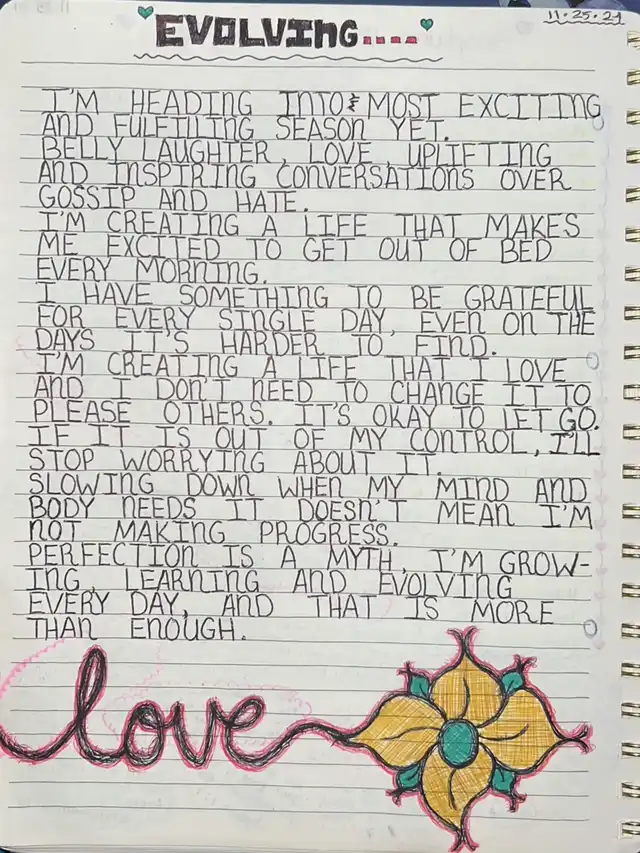 11.25.21
EVOLVING....
I'M HEADING INTO & MOST EXCITING
AND FULFILLING SEASON YET.
BELLY LAUGHTER, LOVE, UPLIFTING
AND INSPIRING CONVERSATIONS OVER
GOSSIP AND HATE.
I'M CREATING A LIFE THAT MAKES
ME EXCITED TO GET OUT OF BED
EVERY MORNING.
I HAVE SOMETHING TO BE GRATEFUL
FOR EVERY SINGLE DAY, EVEN ON THE
DAYS IT'S HARDER TO FIND.
I'M CREATING A LIFE THAT I LOVE
AND I DON'T NEED TO CHANGE IT TO
PLEASE OTHERS. IT'S OKAY TO LET GO.
IF IT IS OUT OF MY CONTROL, I'LL
STOP WORRYING ABOUT IT.
SLOWING DOWN WHEN MY MIND AND
BODY NEEDS IT DOESN'T MEAN I'M
NOT MAKING PROGRESS.
PERFECTION IS A MYTH, I'M GROW-
ING, LEARNING AND EVOLVING
EVERY DAY, AND THAT IS MORE
THAN ENOUGH.
love